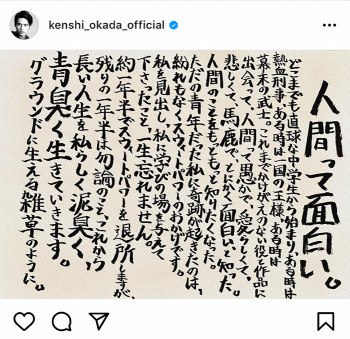 kenshi_okada_official
人間って面白い。
どこまでも真っ直ぐな中学生から始まり、ある時は
熱血刑事、ある時は一国の王様、ある時は
幕末の武士。これまでかけがえのない役と作品に
出会って、人間って愚かで、愛らしくて、
悲しくて、馬鹿で、とにかく面白いと知った。
人間のことをもっともっと知りたくなった。
ただの青年だった私に奇跡が起きたのは、
紛れもなく、スウィートパワーのおかげです。
私を見出し、私に学びの場を与えて
下さったこと、一生忘れません。
約一年半でスウィートパワーを退所しますが、
残りの一年半は勿論のこと、これから
長い人生を私らしく泥臭く、
青臭く生きていきます。
グラウンドに生える雑草のように。